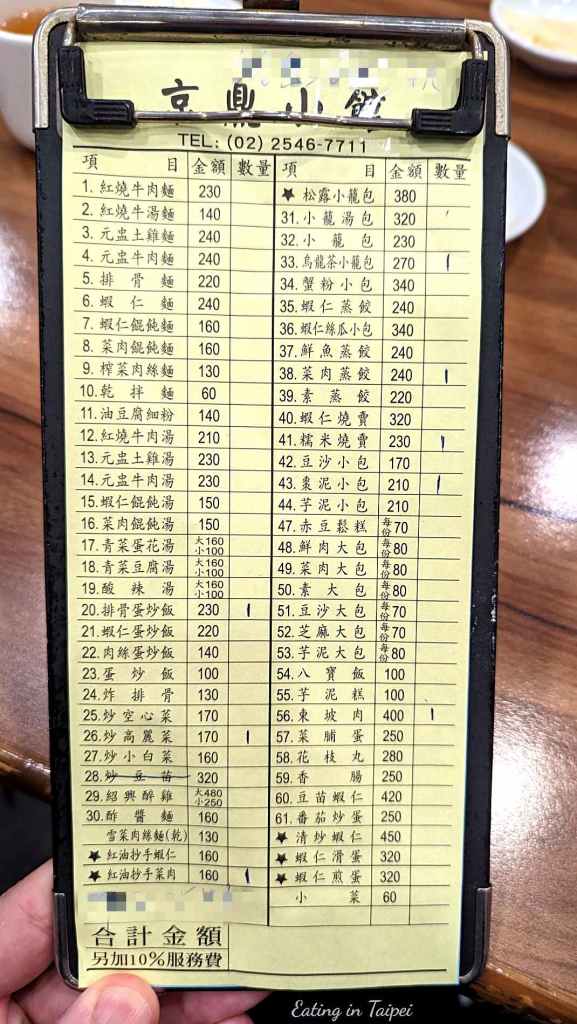 京鼎小館
TEL: (02) 2546-7711
項 目 金額 數量
1. 紅燒牛肉麵 230
2. 紅燒牛湯麵 140
3. 元盅土雞麵 240
4. 元盅牛肉麵 240
5. 排骨麵 220
6. 蝦仁麵 240
7. 蝦仁餛飩麵 160
8. 菜肉餛飩麵 160
9. 榨菜肉絲麵 130
10. 乾拌麵 60
11. 油豆腐細粉 140
12. 紅燒牛肉湯 210
13. 元盅土雞湯 230
14. 元盅牛肉湯 230
15. 蝦仁餛飩湯 150
16. 菜肉餛飩湯 150
17. 青菜蛋花湯 大160 小100
18. 青菜豆腐湯 大160 小100
19. 酸辣湯 大160 小100
20. 排骨蛋炒飯 230 1
21. 蝦仁蛋炒飯 220
22. 肉絲蛋炒飯 140
23. 蛋炒飯 100
24. 炸排骨 130
25. 炒空心菜 170
26. 炒高麗菜 170 1
27. 炒小白菜 160
28. 炒豆苗 320
29. 紹興醉雞 大480 小250
30. 酢醬麵 160
雪菜肉絲麵(乾) 130
★ 紅油抄手蝦仁 160
★ 紅油抄手菜肉 160 1
合計金額
另加10%服務費
項 目 金額 數量
★ 松露小籠包 380
31. 小籠湯包 320
32. 小籠包 230
33. 烏龍茶小籠包 270 1
34. 蟹粉小包 340
35. 蝦仁蒸餃 240
36. 蝦仁絲瓜小包 340
37. 鮮魚蒸餃 240
38. 菜肉蒸餃 240 1
39. 素蒸餃 220
40. 蝦仁燒賣 320
41. 糯米燒賣 230 1
42. 豆沙小包 170
43. 棗泥小包 210 1
44. 芋泥小包 210
47. 赤豆鬆糕 每份70
48. 鮮肉大包 每份80
49. 菜肉大包 每份80
50. 素大包 每份80
51. 豆沙大包 每份70
52. 芝麻大包 每份70
53. 芋泥大包 每份80
54. 八寶飯 100
55. 芋泥糕 100
56. 東坡肉 400 1
57. 菜脯蛋 250
58. 花枝丸 280
59. 香腸 250
60. 豆苗蝦仁 420
61. 番茄炒蛋 250
★ 清炒蝦仁 450
★ 蝦仁滑蛋 320
★ 蝦仁煎蛋 320
小菜 60
Eating in Taipei